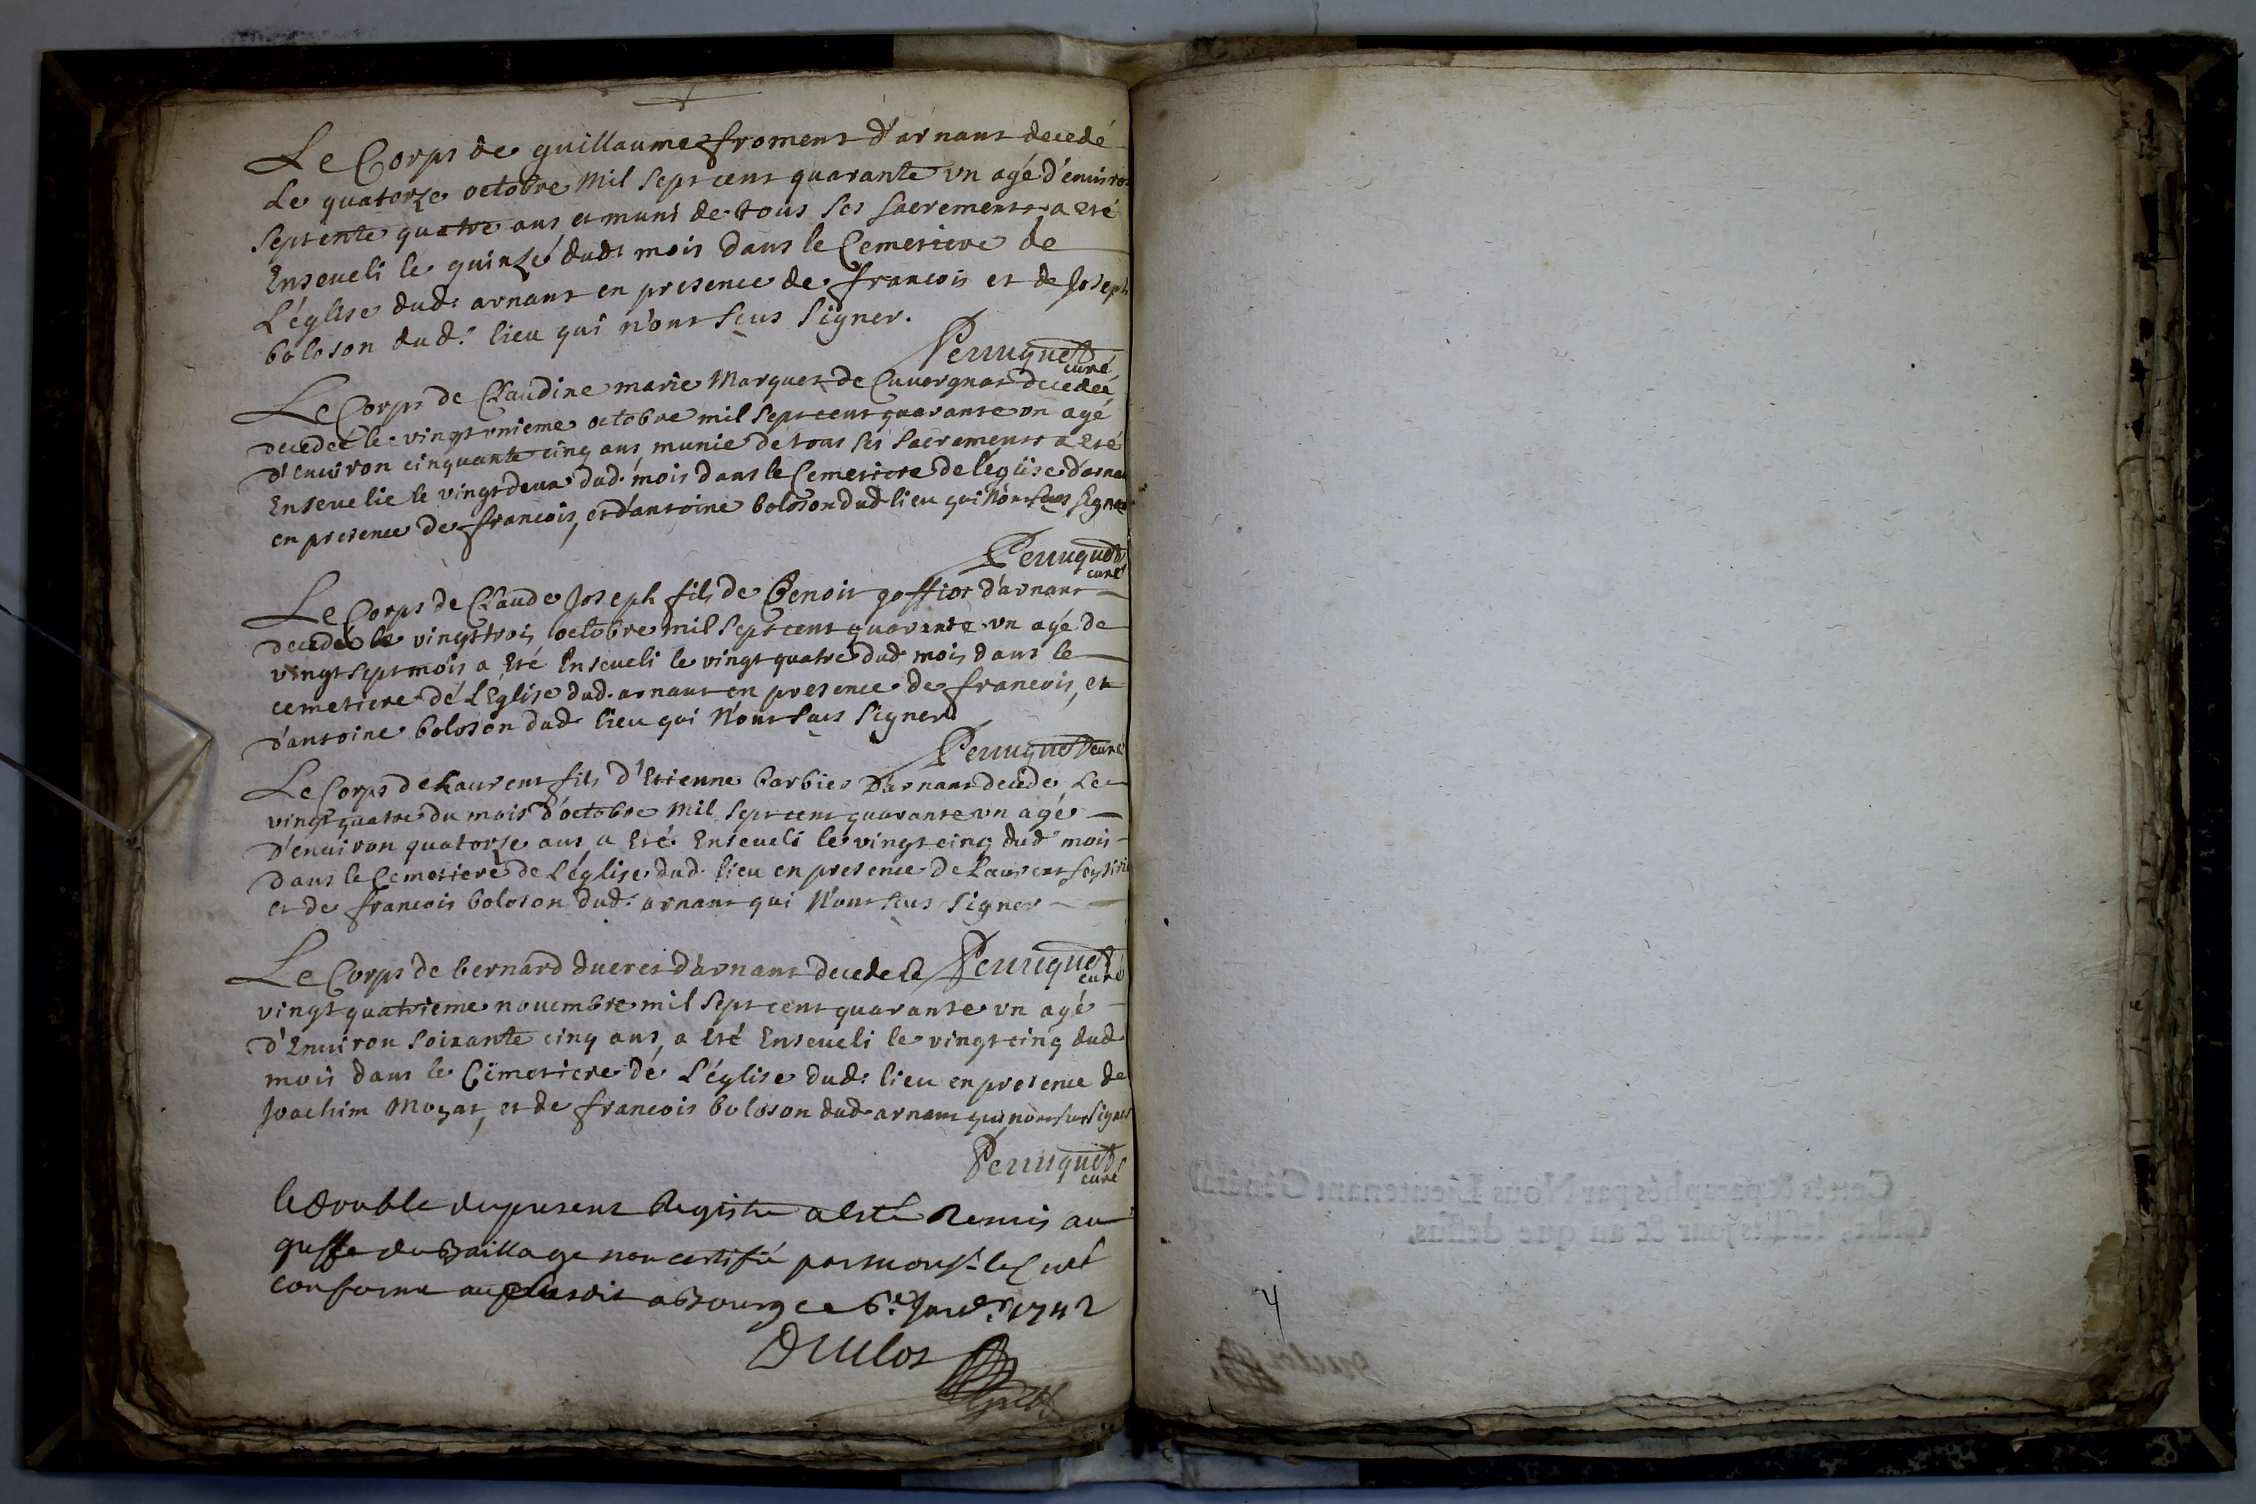 Le Corps de guillaume froment d'arnans decedé
Le quatorze octobre Mil Sept cent quarante vn agé d'enuiron
septente quatre ans et muni de tous ses sacrements a eté
Enseueli le quinze dud: mois dans le Cemetiere de
L'église dud: arnans en presence de françois et de Joseph
boloson dud: lieu qui n'ont sçus signer.
Perruquet curé
Le Corps de Claudine marie Marquet de Cuuergnat decedeé
decedeé le vingt vnieme octobre mil sept cent quarante vn agé
d'enuiron cinquante cinq ans, munie de tous ses sacrements a eté
Enseuelie le vingt deux dud. mois dans le Cemetiere de l'église d'arnans
en presence de françois, et d'antoine boloson dud lieu qui n'ont sçus signer
Perruquet curé
Le Corps de Claude Joseph fils de Benoit goffiot d'arnans
decedé le vingt trois octobre mil sept cent quarante vn agé de
vingt sept mois a eté Enseueli le vingt quatre dud mois dans le
cemetiere de L'Eglise dud. arnans en presence de françois, et
d'antoine boloson dud lieu qui n'ont sçus signer.
Perruquet curé
Le Corps de Laurent fils d'Etienne barbier D'arnans decede Le
vingt quatre du mois d'octobre Mil sept cent quarante vn agé
d'enuiron quatorze ans a eté Enseueli le vingt cinq dud mois
dans le Cemetiere de L'église dud. lieu en presence de Laurent
et de françois boloson dud. arnans qui n'ont sçus signer
Le Corps de bernard d'arnans decede le Perruquet curé
vingt quatrieme nouembre mil sept cent quarante vn agé
d'Enuiron soixante cinq ans, a eté Enseueli le vingt cinq dud
mois dans le Cimetiere de L'église dud: lieu en presence de
Joachim Mozat, et de françois boloson dud arnans qui n'ont sçus signer
Perruquet curé
le double du present Registre a esté Remis au
greffe du Baillage non certifié par monsr. le Curé
conforme a Bourg ce 6.e Janv.r 1742
Cottés & paraphés par Nous Lieutenant Général
jour & an que dessus.
4